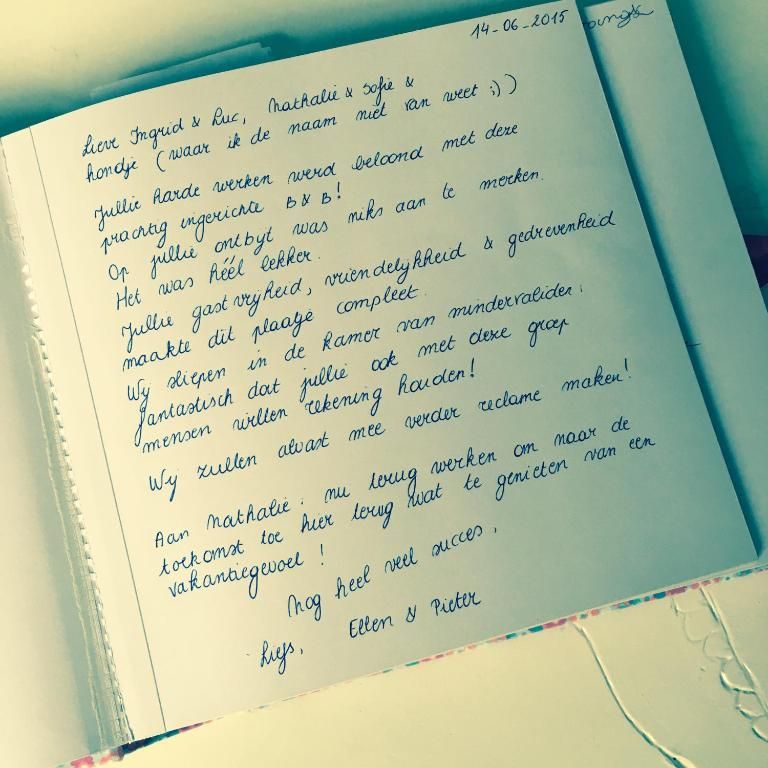 14-06-2015
Lieve Ingrid & Luc, Nathalie & Sofie &
hondje (waar ik de naam niet van weet ;))
Jullie harde werken werd beloond met deze
prachtig ingerichte B&B!
Op jullie ontbyt was niks aan te merken.
Het was héél lekker.
Jullie gastvrijheid, vriendelykheid & gedrevenheid
maakte dit plaatje compleet.
Wy sliepen in de kamer van mindervaliden:
fantastisch dat jullie ook met deze groep
mensen willen rekening houden!
Wy zullen alvast mee verder reclame maken!
Aan Nathalie: nu terug werken om naar de
toekomst toe hier terug wat te genieten van een
vakantiegevoel!
Nog heel veel succes,
Liefs,
Ellen & Pieter